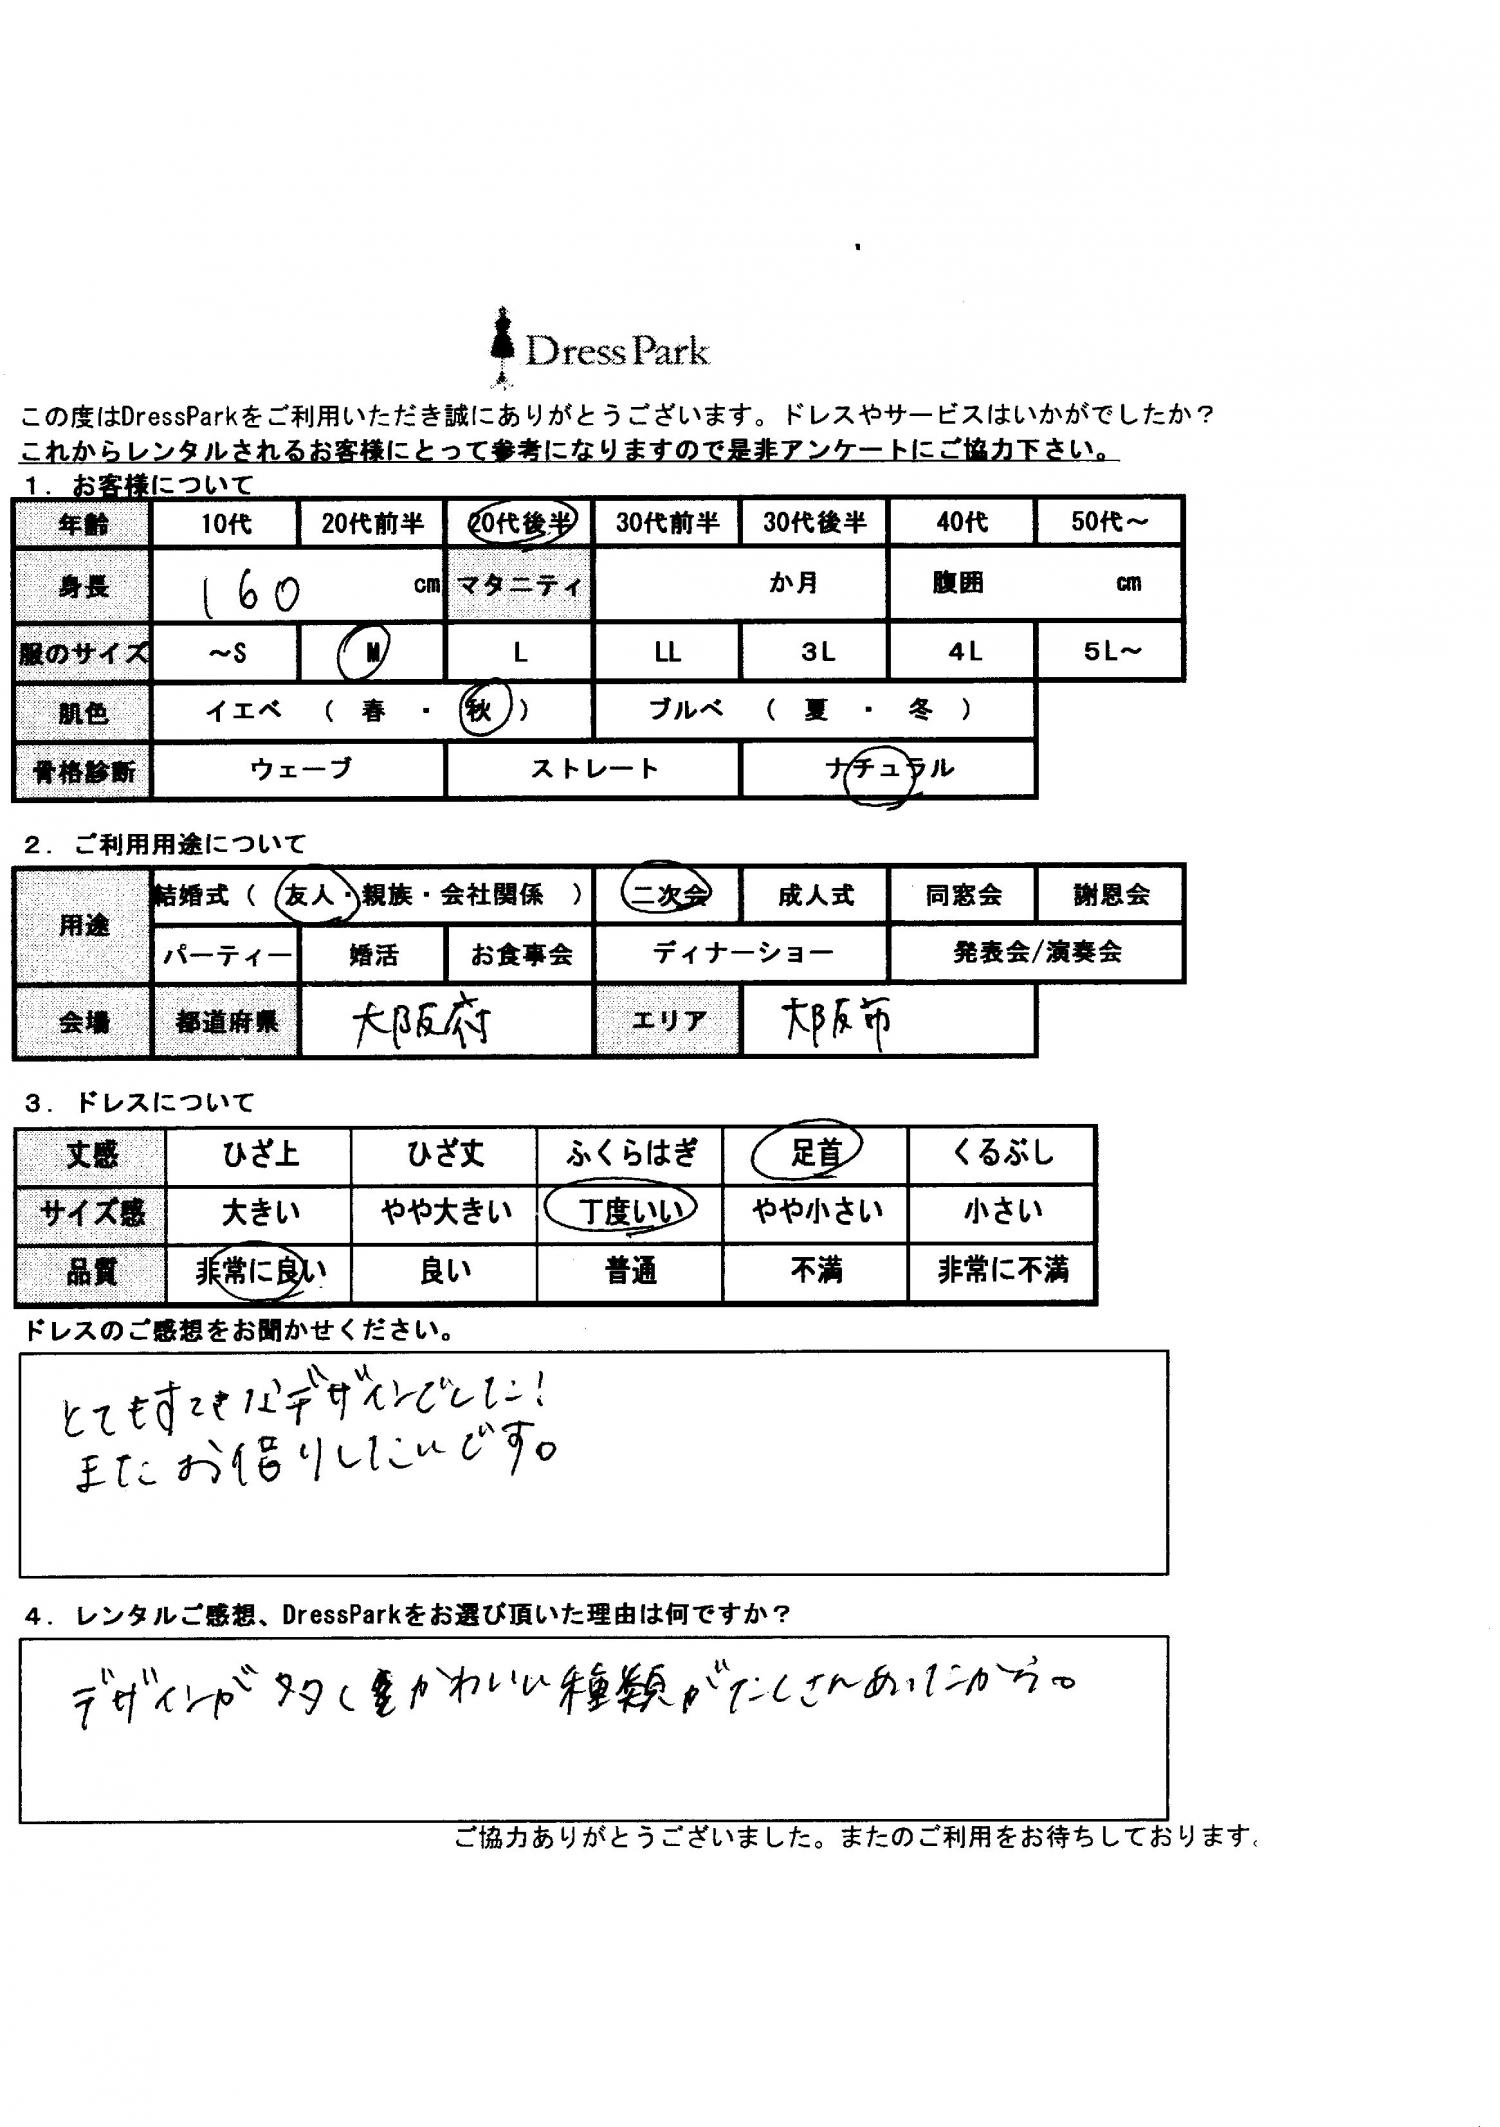 DressPark
この度はDressParkをご利用いただき誠にありがとうございます。ドレスやサービスはいかがでしたか？
これからレンタルされるお客様にとって参考になりますので是非アンケートにご協力下さい。
１．お客様について
年齢 10代 20代前半 20代後半 30代前半 30代後半 40代 50代～
身長 160 cm マタニティ か月 腹囲 cm
服のサイズ ～S M L LL 3L 4L 5L～
肌色 イエベ （ 春 ・ 秋 ） ブルベ （ 夏 ・ 冬 ）
骨格診断 ウェーブ ストレート ナチュラル
２．ご利用用途について
用途 結婚式（ 友人・親族・会社関係 ） 二次会 成人式 同窓会 謝恩会
パーティー 婚活 お食事会 ディナーショー 発表会/演奏会
会場 都道府県 大阪府 エリア 大阪市
３．ドレスについて
丈感 ひざ上 ひざ丈 ふくらはぎ 足首 くるぶし
サイズ感 大きい やや大きい 丁度いい やや小さい 小さい
品質 非常に良い 良い 普通 不満 非常に不満
ドレスのご感想をお聞かせください。
とてもすてきなデザインでした！
またお借りしたいです。
４．レンタルご感想、DressParkをお選び頂いた理由は何ですか？
デザインが多くかわいい種類がたくさんあったから。
ご協力ありがとうございました。またのご利用をお待ちしております。